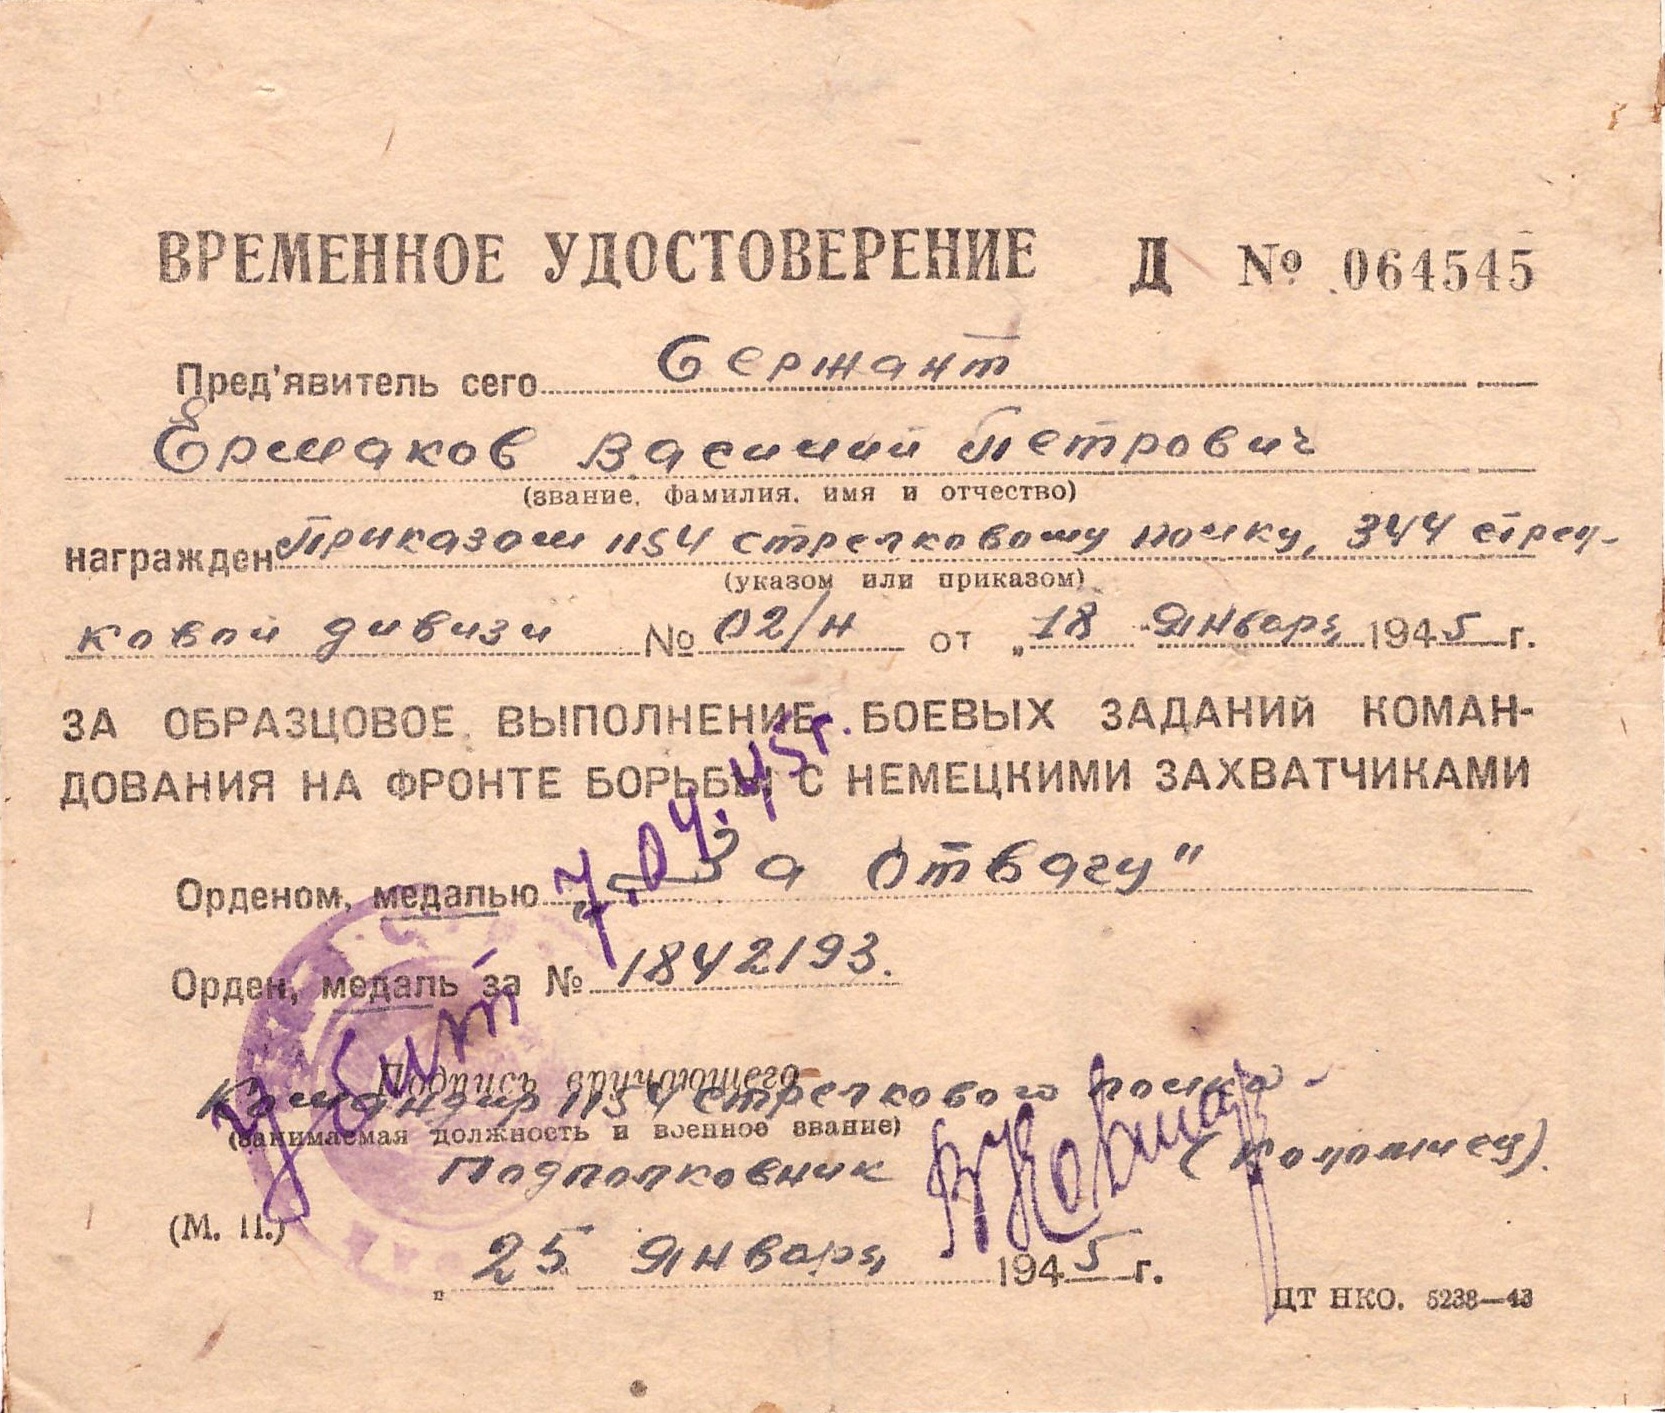 ВРЕМЕННОЕ УДОСТОВЕРЕНИЕ Д № 064545
Пред'явитель сего Сержант
Ермаков Василий Петрович
(звание, фамилия, имя и отчество)
награжден Приказом 1154 стрелковому полку, 344 стрел-
(указом или приказом)
ковой дивизи № 02/н от „18 Января 1945 г.
ЗА ОБРАЗЦОВОЕ ВЫПОЛНЕНИЕ БОЕВЫХ ЗАДАНИЙ КОМАН-
ДОВАНИЯ НА ФРОНТЕ БОРЬБЫ С НЕМЕЦКИМИ ЗАХВАТЧИКАМИ
Орденом, медалью „За Отвагу"
Орден, медаль за № 1842193.
Убит 7.04.45г.
Подпись вручающего
Командир 1154 стрелкового полка -
(занимаемая должность и военное звание)
Подполковник
(М. П.)
„25 Января 1945 г.
ЦТ НКО. 5238—43